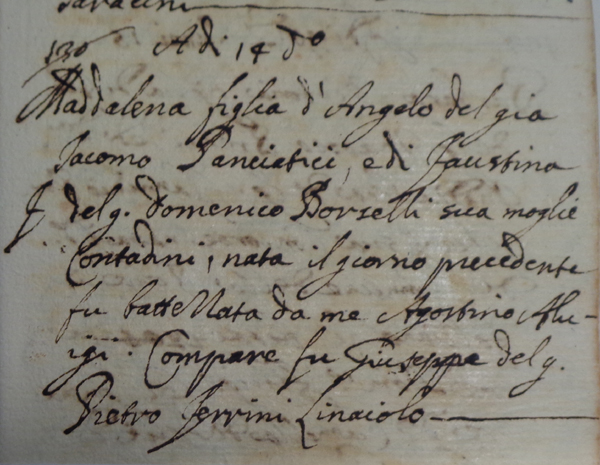 Saracini
130 A di 14 do
Maddalena figlia d'Angelo del gia
Jacomo Panciatici, e di Faustina
del g. Domenico Borselli sua moglie
Contadini, nata il giorno precedente
fu battezzata da me Agostino Alu-
igi. Compare fu Giuseppe del g.
Pietro Ferrini Linaiolo